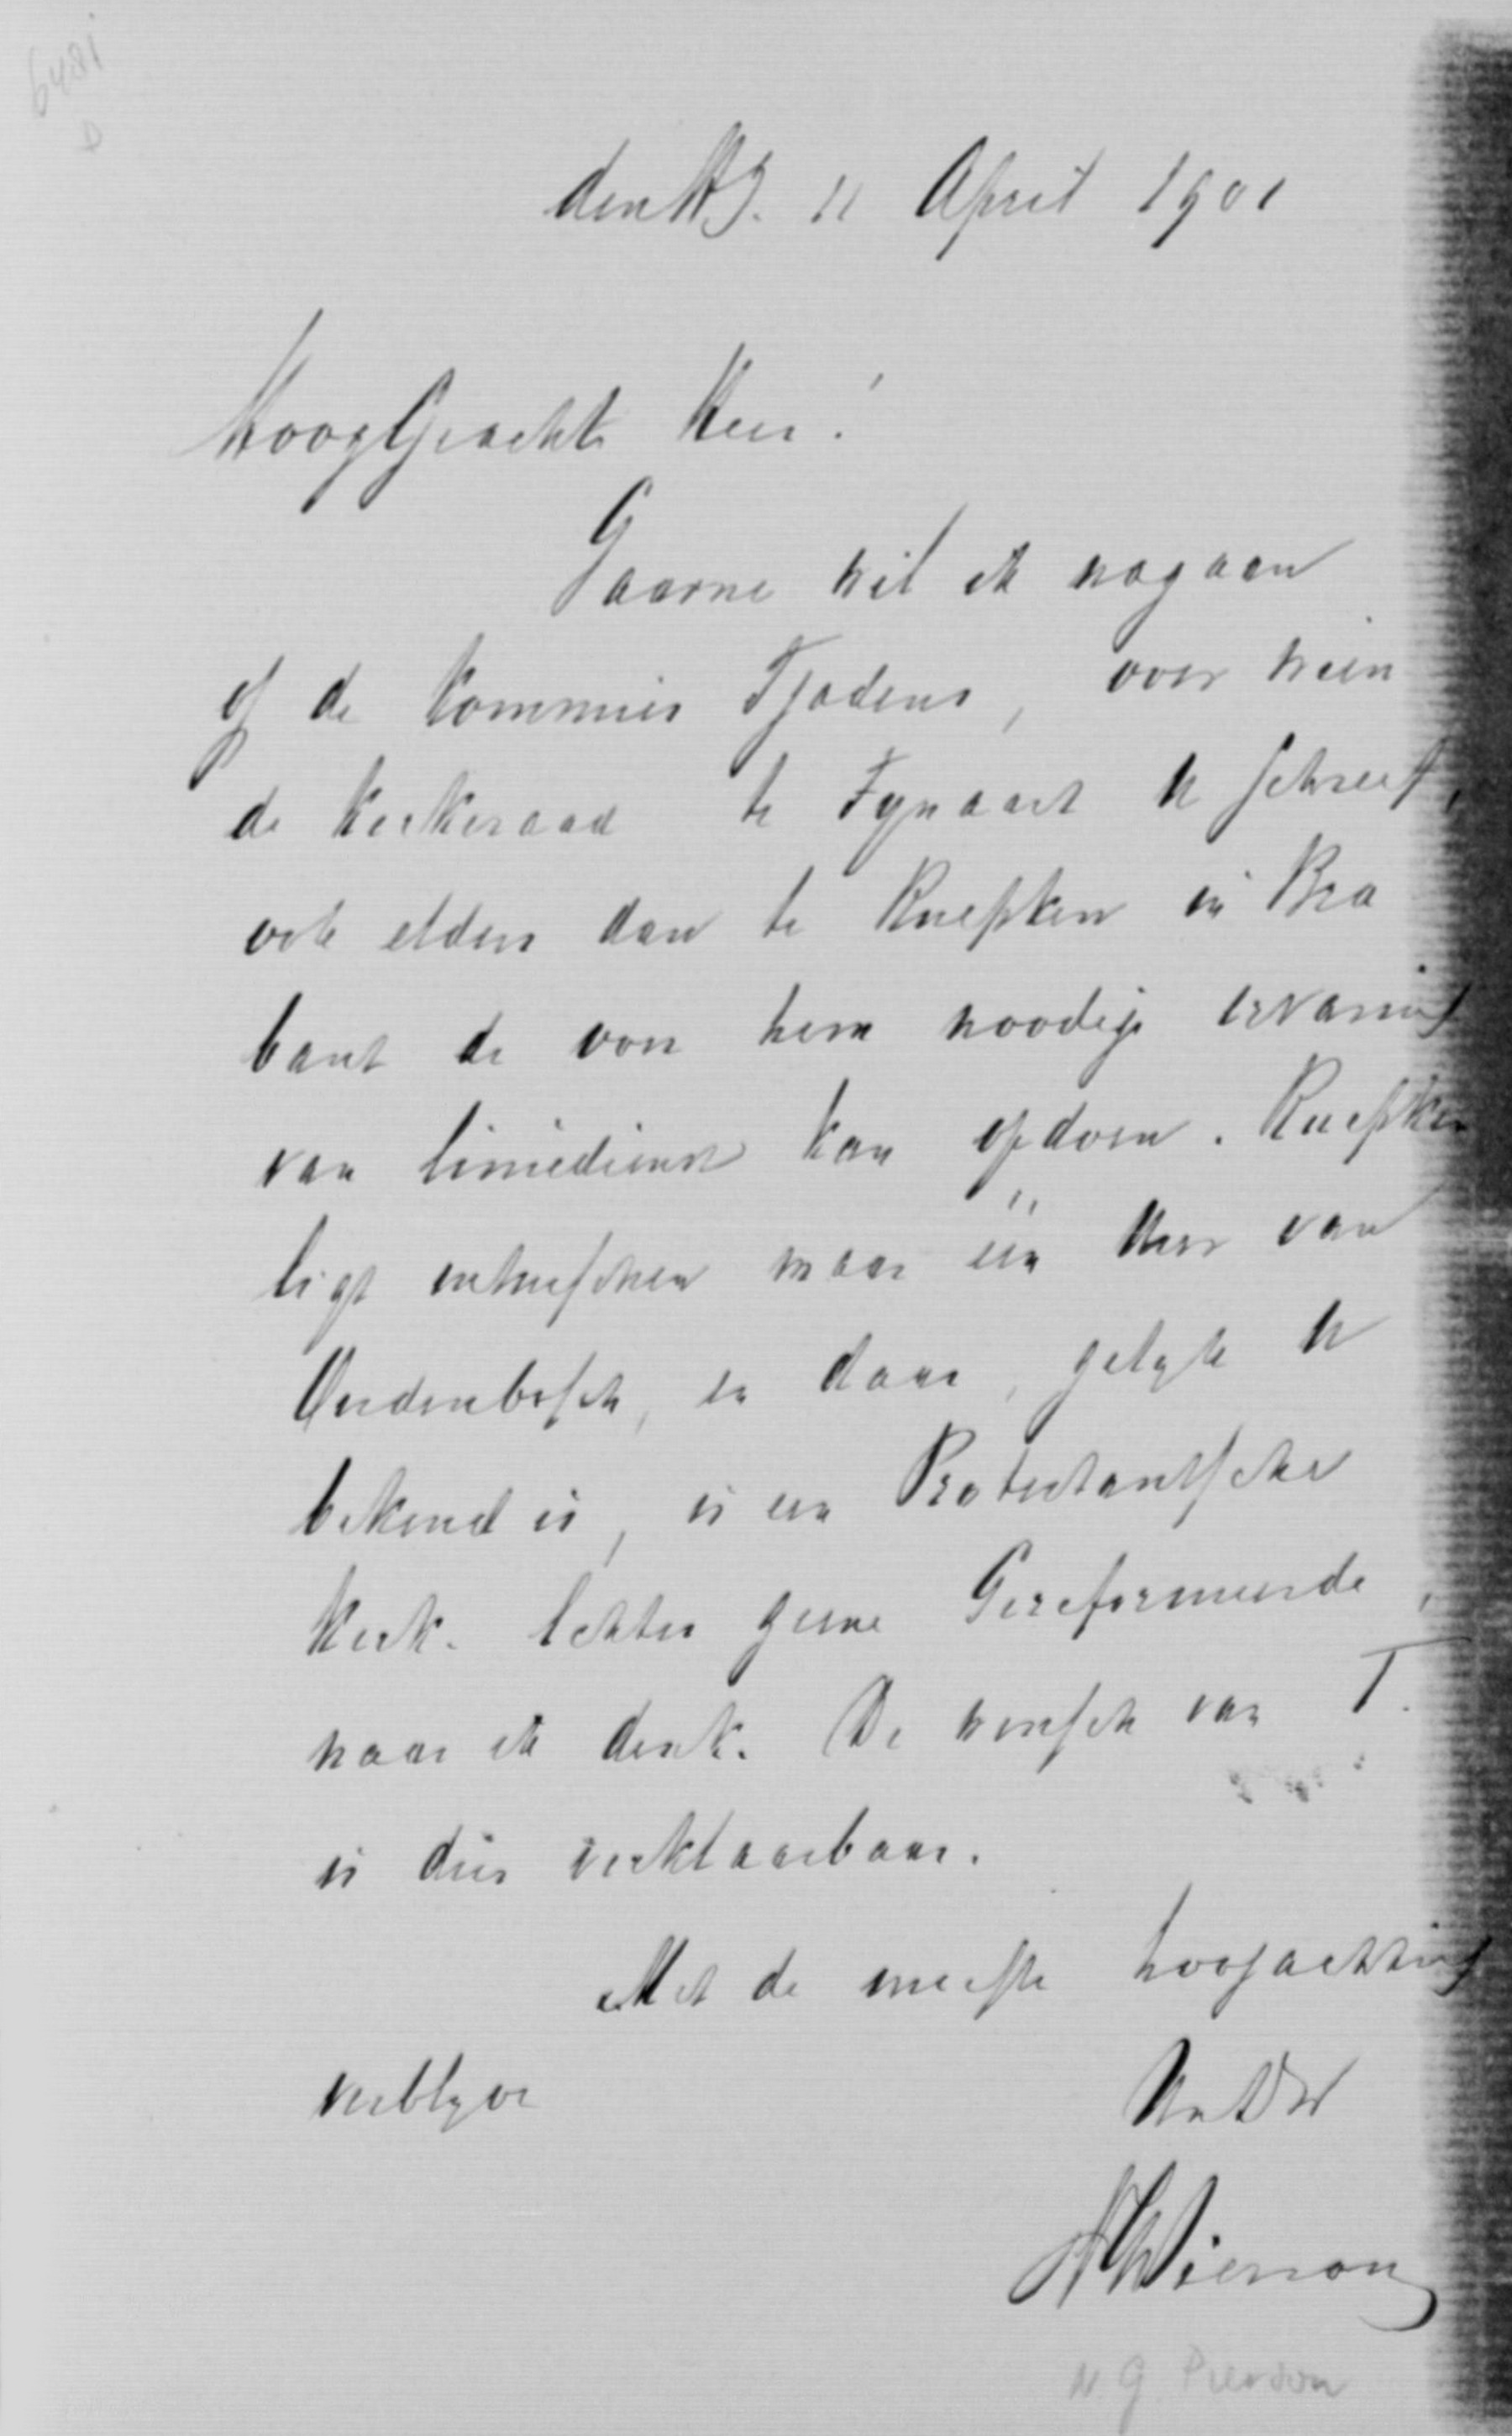 6481
D
den Hg. 11 April 1901
HoogGeachte Heer!
Gaarne wil ik nagaan
of de kommies Tjadens, over wien
de kerkeraad te Fynaart U schreef,
ook elders dan te Kuepken in Bra
bant de voor hem noodige ervaring
van liniedienst kan opdoen. Kuepken
ligt intusschen maar één uur van
Oudenbosch, en daar, gelyk U
bekend is, is een Protestantsche
kerk. Echter geene Gereformeerde,
naar ik denk. De wensch van T.
is dus verklaarbaar.
Met de meeste hoogachting
verblyve
UwDW
NGPierson
N. G. Pierson